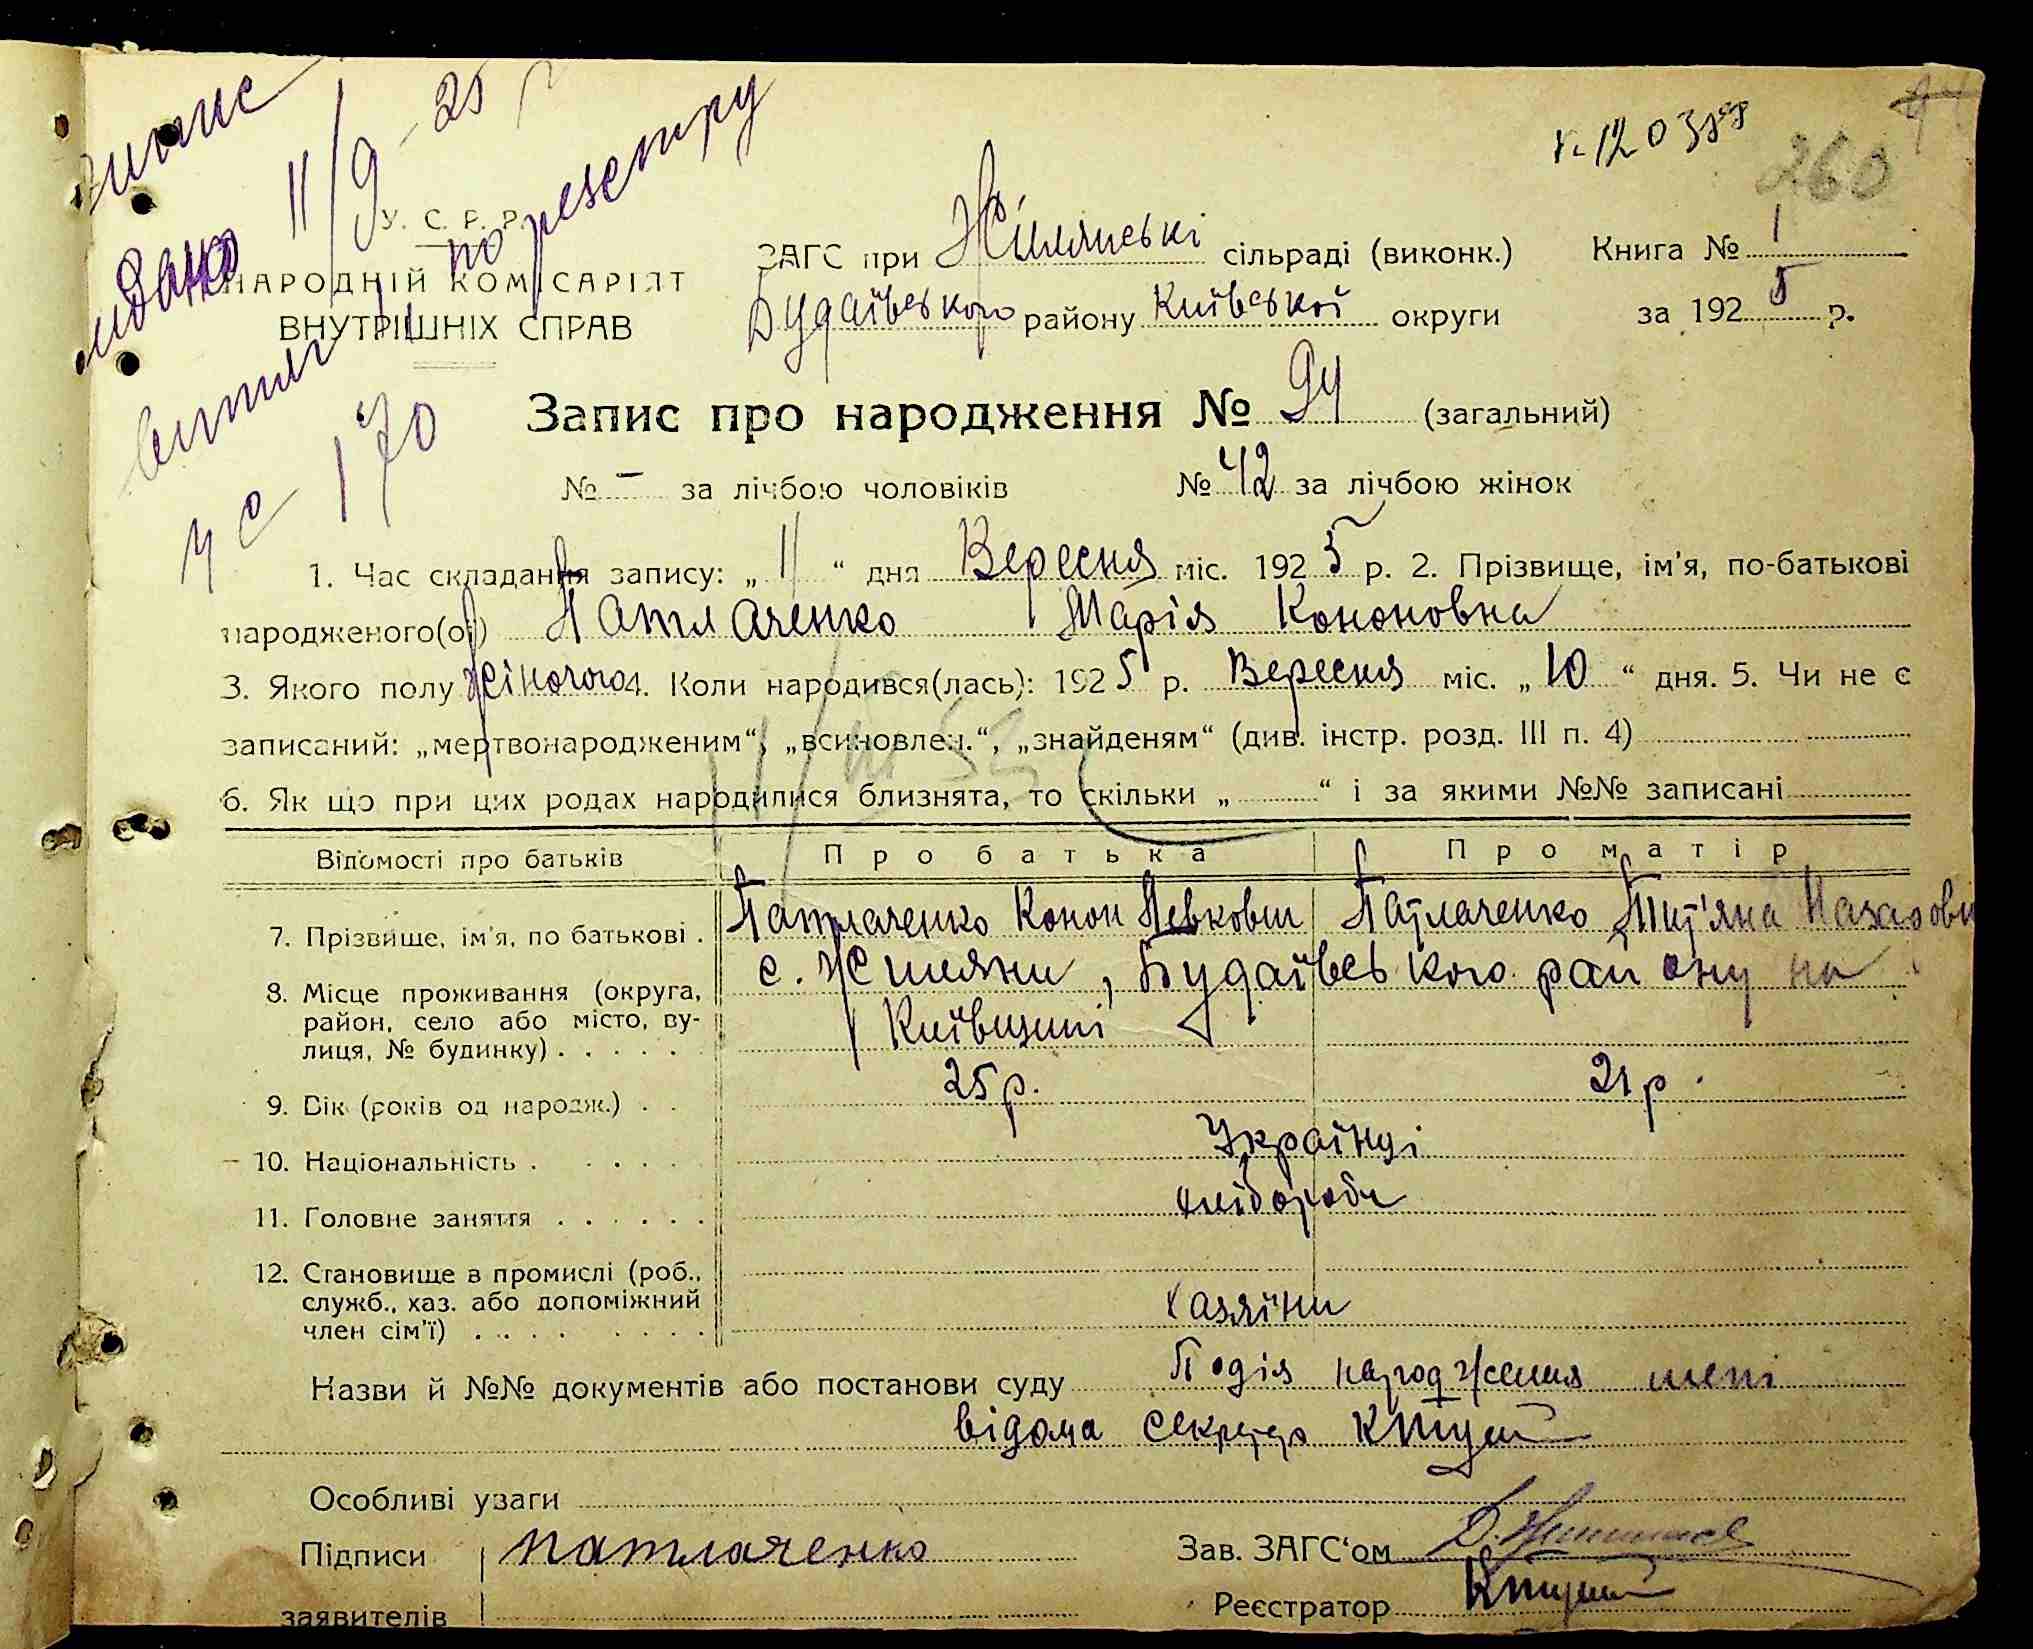 випис
видано 11/9-25 р
витяг по реєстру
ч с 170
260
У. С. Р. Р.
НАРОДНІЙ КОМІСАРІЯТ
ВНУТРІШНІХ СПРАВ
ЗАГС при Жилянські сільраді (виконк.) Книга № 1
Будаївського району Київської округи за 1925 р.
Запис про народження № 94 (загальний)
№ – за лічбою чоловіків № 42 за лічбою жінок
1. Час складання запису: „11“ дня Вересня міс. 1925 р. 2. Прізвище, ім'я, по-батькові
народженого(ої) Патлаченко Марія Кононовна
3. Якого полу жіночого 4. Коли народився(лась): 1925 р. Вересня міс. „10“ дня. 5. Чи не є
записаний: „мертвонародженим“, „всиновлен.“, „знайденям“ (див. інстр. розд. III п. 4)
6. Як що при цих родах народилися близнята, то скільки „ “ і за якими №№ записані
Відомості про батьків Про батька Про матір
7. Прізвище, ім'я, по батькові . Патлаченко Конон Левкович Патлаченко Тит'яна Назаровн
8. Місце проживання (округа, с. Жиляни, Будаївського району на
район, село або місто, ву- Київщині
лиця, № будинку) . . . . .
9. Вік (років од народж.) . . 25 р. 21 р.
10. Національність . . . . . Українці
11. Головне заняття . . . . . . хлібороби
12. Становище в промислі (роб.,
служб., хаз. або допоміжний хазяїни
член сім'ї) . . . . . . . .
Назви й №№ документів або постанови суду Подія народження мені
відома секретар
Особливі уваги
Підписи Патлаченко Зав. ЗАГС'ом
заявителів Реєстратор